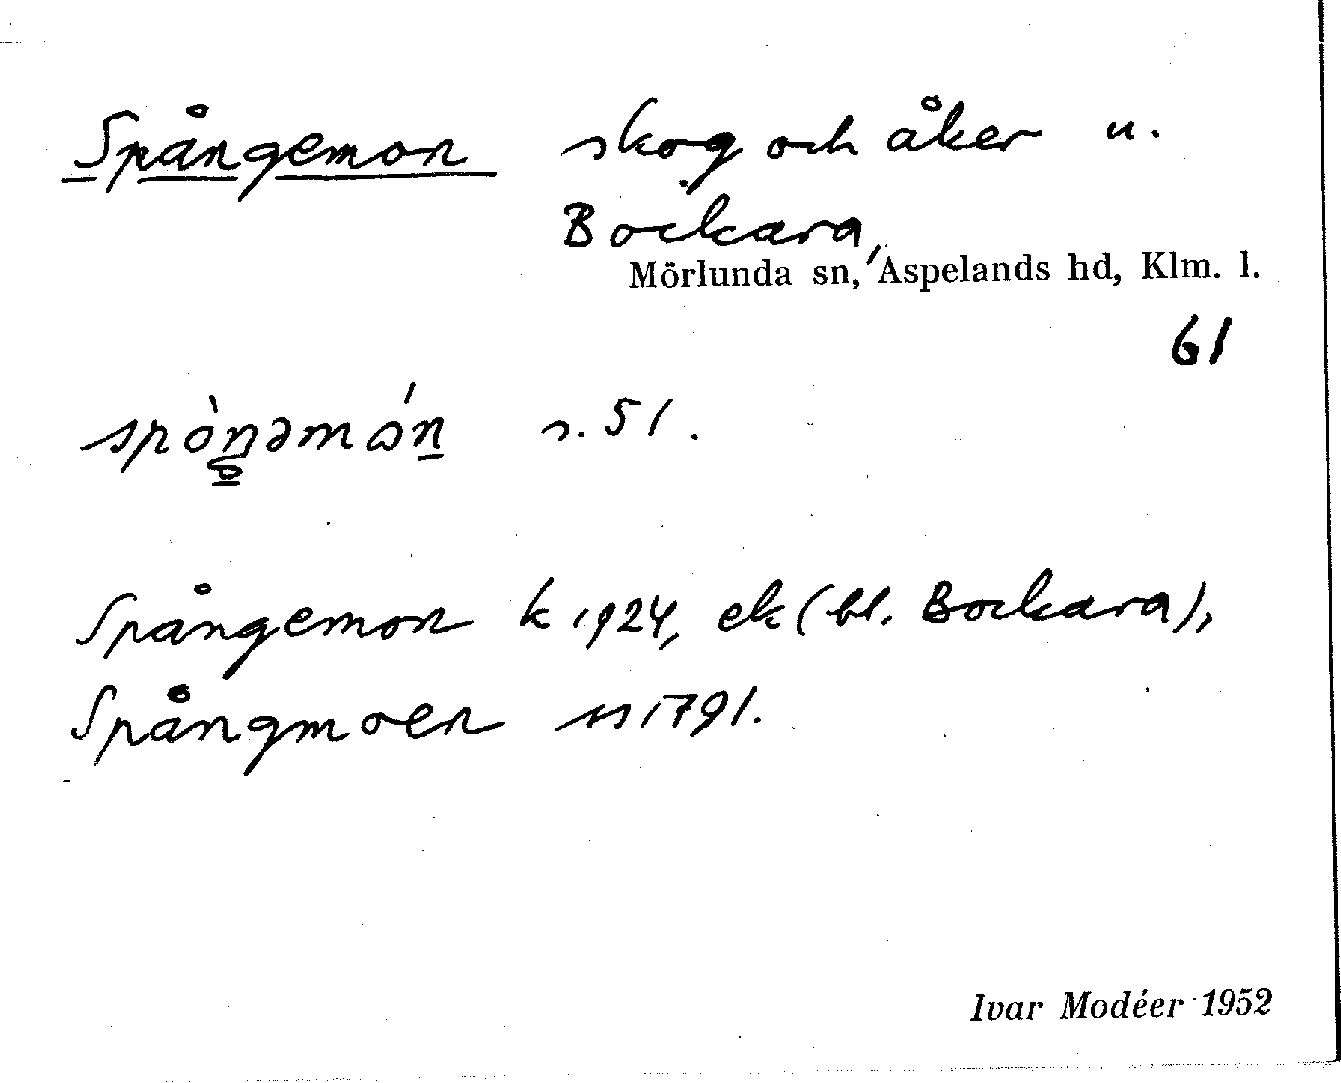 Spångemon skog och åker u.
Bockara,
Mörlunda sn, Aspelands hd, Klm. l.
61
s. 51.
Spångemon k 1924, ek (bl. Bockara),
Spångmoen ss 1791.
Ivar Modéer 1952